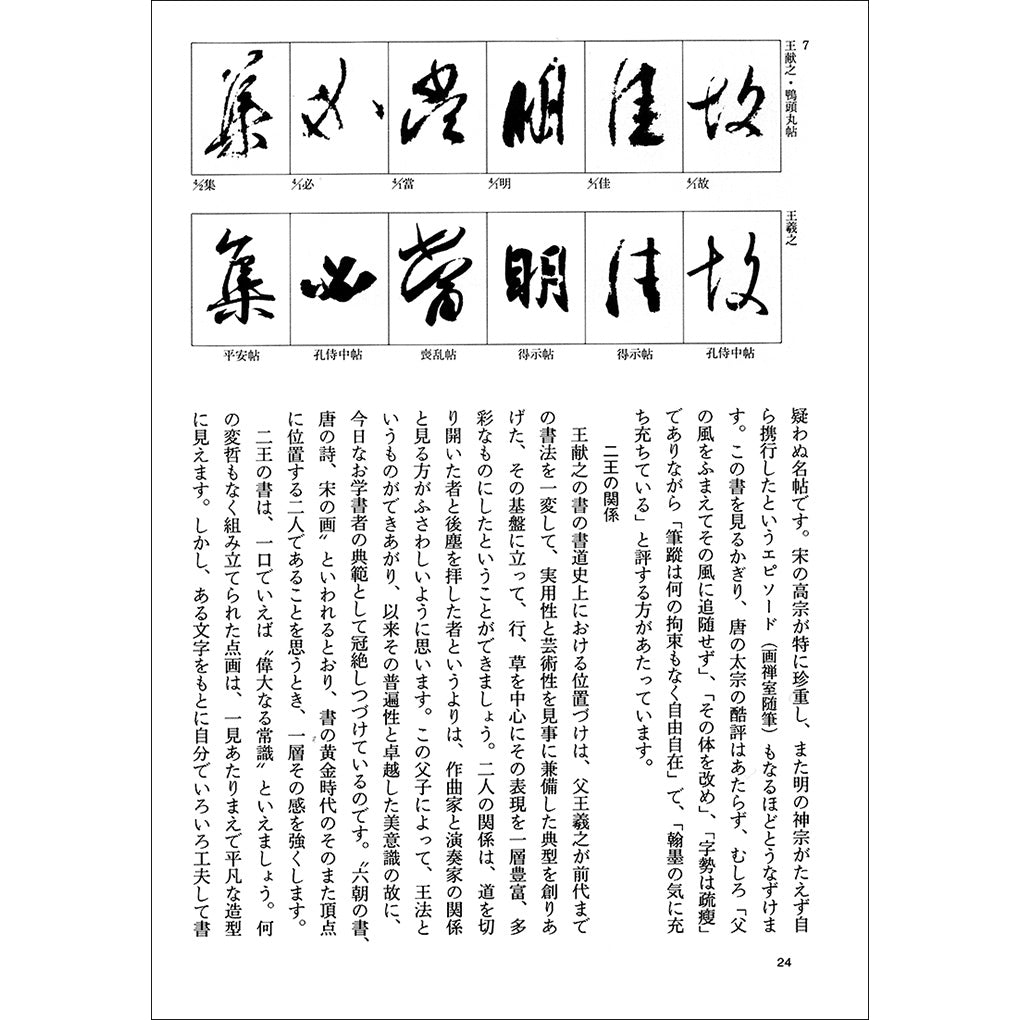 7 王献之・鴨頭丸帖
故 佳 明 當 必 集
故
佳
明
當
必
集
王羲之
故 佳 明 當 必 集
孔侍中帖
得示帖
得示帖
喪乱帖
孔侍中帖
平安帖
疑わぬ名帖です。宋の高宗が特に珍重し、また明の神宗がたえず自
ら携行したというエピソード(画禅室随筆)もなるほどとうなずけま
す。この書を見るかぎり、唐の太宗の酷評はあたらず、むしろ「父
の風をふまえてその風に追随せず」、「その体を改め」、「字勢は疏瘦」
でありながら「筆蹤は何の拘束もなく自由自在」で、「翰墨の気に充
ち充ちている」と評する方があたっています。
二王の関係
王献之の書の書道史上における位置づけは、父王羲之が前代まで
の書法を一変して、実用性と芸術性を見事に兼備した典型を創りあ
げた、その基盤に立って、行、草を中心にその表現を一層豊富、多
彩なものにしたということができましょう。二人の関係は、道を切
り開いた者と後塵を拝した者というよりは、作曲家と演奏家の関係
と見る方がふさわしいように思います。この父子によって、王法と
いうものができあがり、以来その普遍性と卓越した美意識の故に、
今日なお学書者の典範として冠絶しつづけているのです。〝六朝の書、
唐の詩、宋の画〟といわれるとおり、書の黄金時代のそのまた頂点
に位置する二人であることを思うとき、一層その感を強くします。
二王の書は、一口でいえば〝偉大なる常識〟といえましょう。何
の変哲もなく組み立てられた点画は、一見あたりまえで平凡な造型
に見えます。しかし、ある文字をもとに自分でいろいろ工夫して書
24